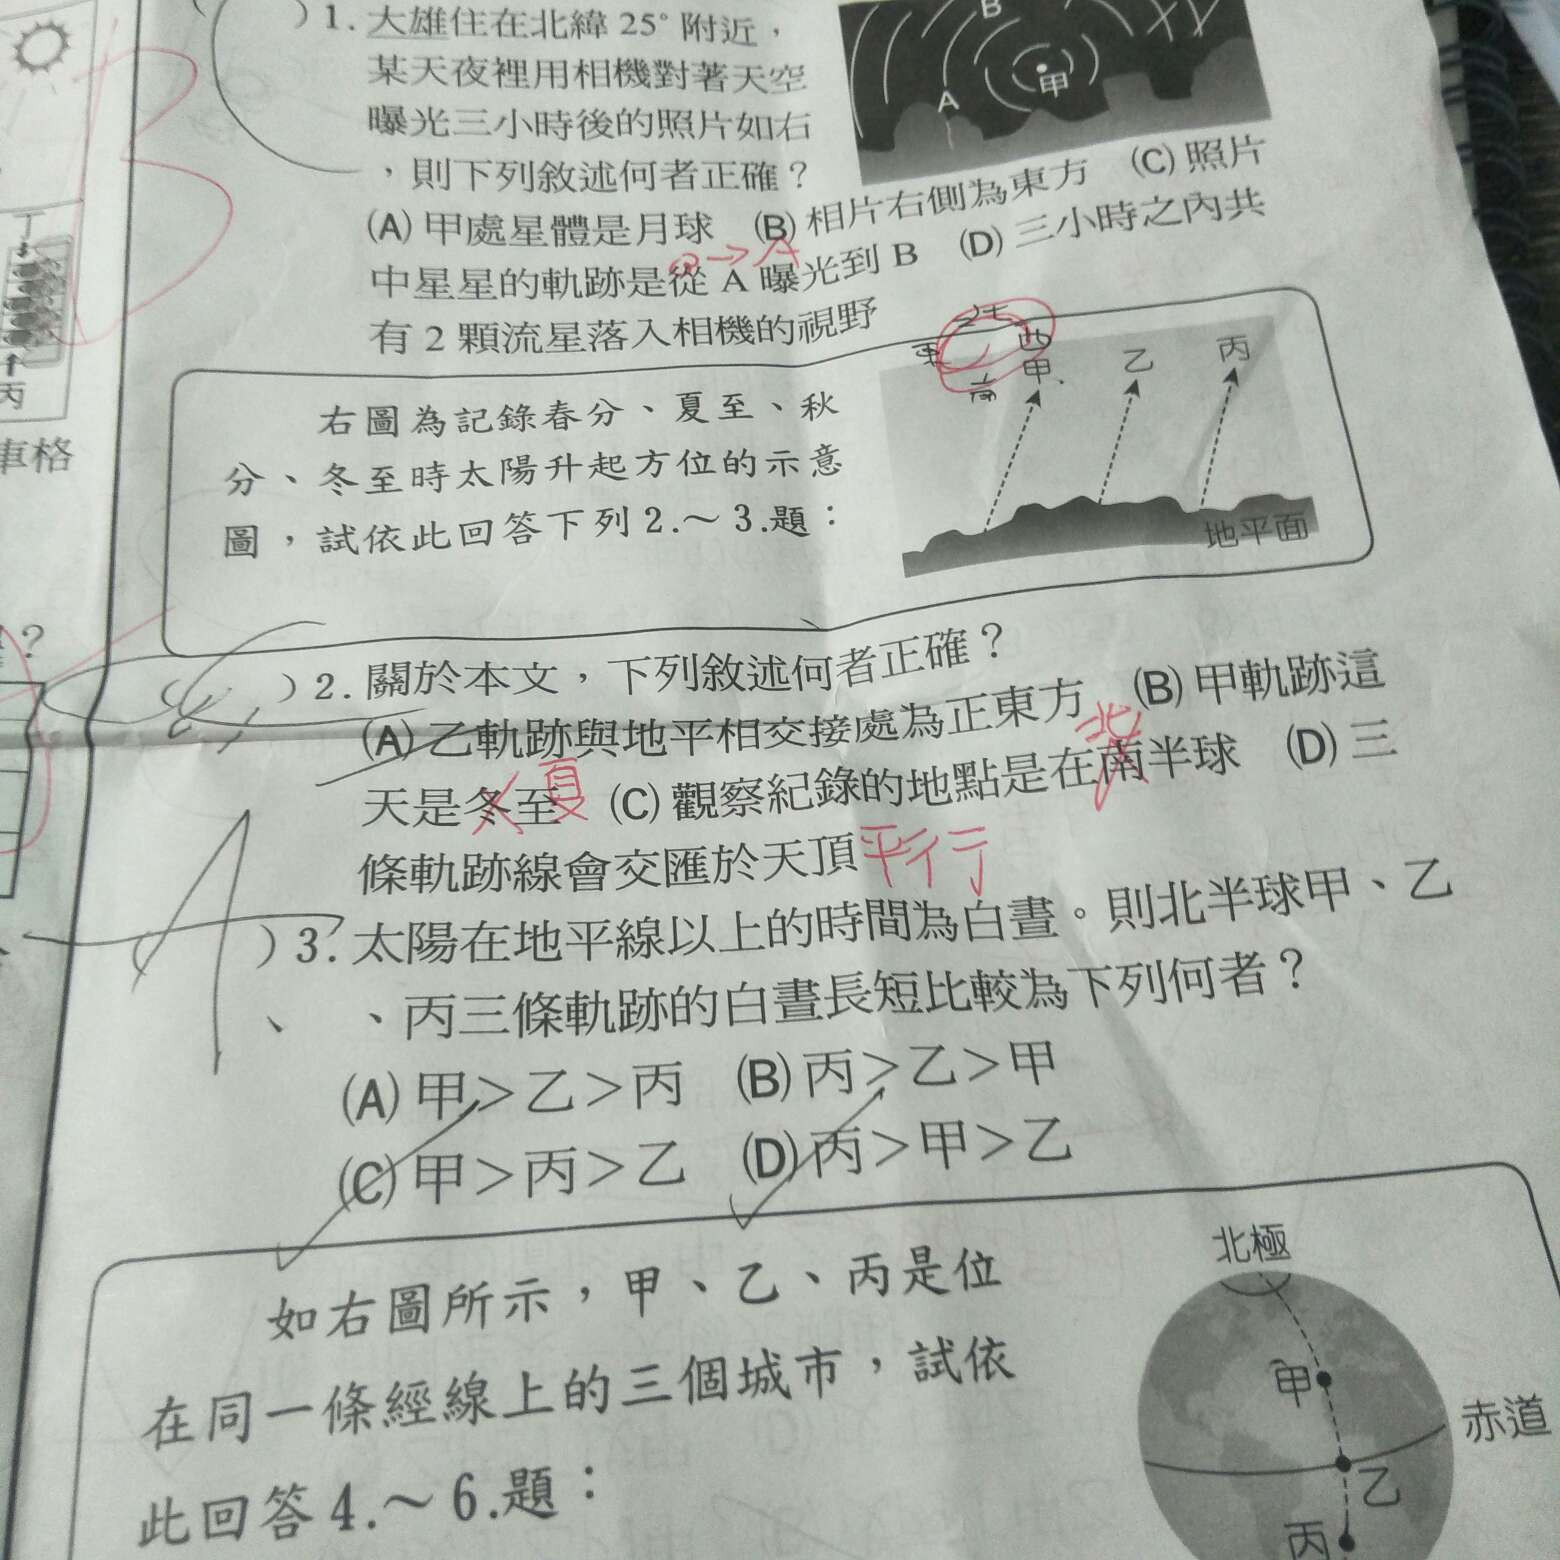 )1. 大雄住在北緯 25° 附近，
某天夜裡用相機對著天空
曝光三小時後的照片如右
，則下列敘述何者正確？
(A) 甲處星體是月球 (B) 相片右側為東方 (C) 照片
中星星的軌跡是從 A 曝光到 B (D) 三小時之內共
有 2 顆流星落入相機的視野
→A
B
甲
A
右圖為記錄春分、夏至、秋
分、冬至時太陽升起方位的示意
圖，試依此回答下列 2.～3.題：
東
北
西
南
甲
乙
丙
地平面
)2. 關於本文，下列敘述何者正確？
(A) 乙軌跡與地平相交接處為正東方 (B) 甲軌跡這
天是冬至 (C) 觀察紀錄的地點是在南半球 (D) 三
條軌跡線會交匯於天頂
夏
北
平行
A
)3. 太陽在地平線以上的時間為白晝。則北半球甲、乙
、丙三條軌跡的白晝長短比較為下列何者？
(A) 甲＞乙＞丙 (B) 丙＞乙＞甲
(C) 甲＞丙＞乙 (D) 丙＞甲＞乙
如右圖所示，甲、乙、丙是位
在同一條經線上的三個城市，試依
此回答 4.～6.題：
北極
甲
赤道
乙
丙
丁
丙
車格
？